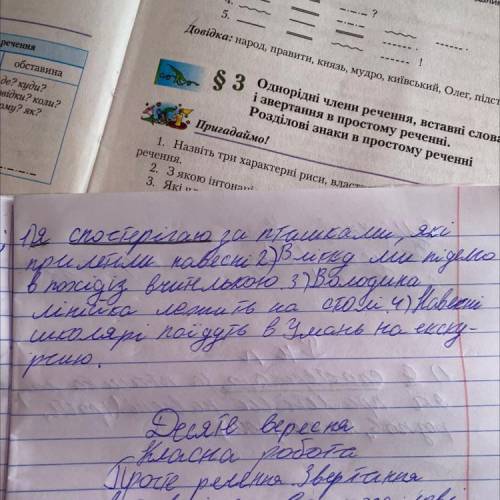 4.
?
5.
!
Довідка: народ, правити, князь, мудро, київський, Олег,
речення
обставина
де? куди?
коли?
як?
§ 3 Однорідні члени речення, вставні слова
і звертання в простому реченні.
Розділові знаки в простому реченні
Пригадаймо!
1. Назвіть три характерні риси,
речення.
2. З якою
3. Які
1) я спостерігаю за пташками, які
прилетіли навесні 2) Влітку ми підемо
в похід із вчителькою. 3) Володина
лінійка лежить на столі. 4) Навесні
школярі поїдуть в Умань на екску-
рсию.
Десяте вересня
Класна робота
Просте речення Звертання